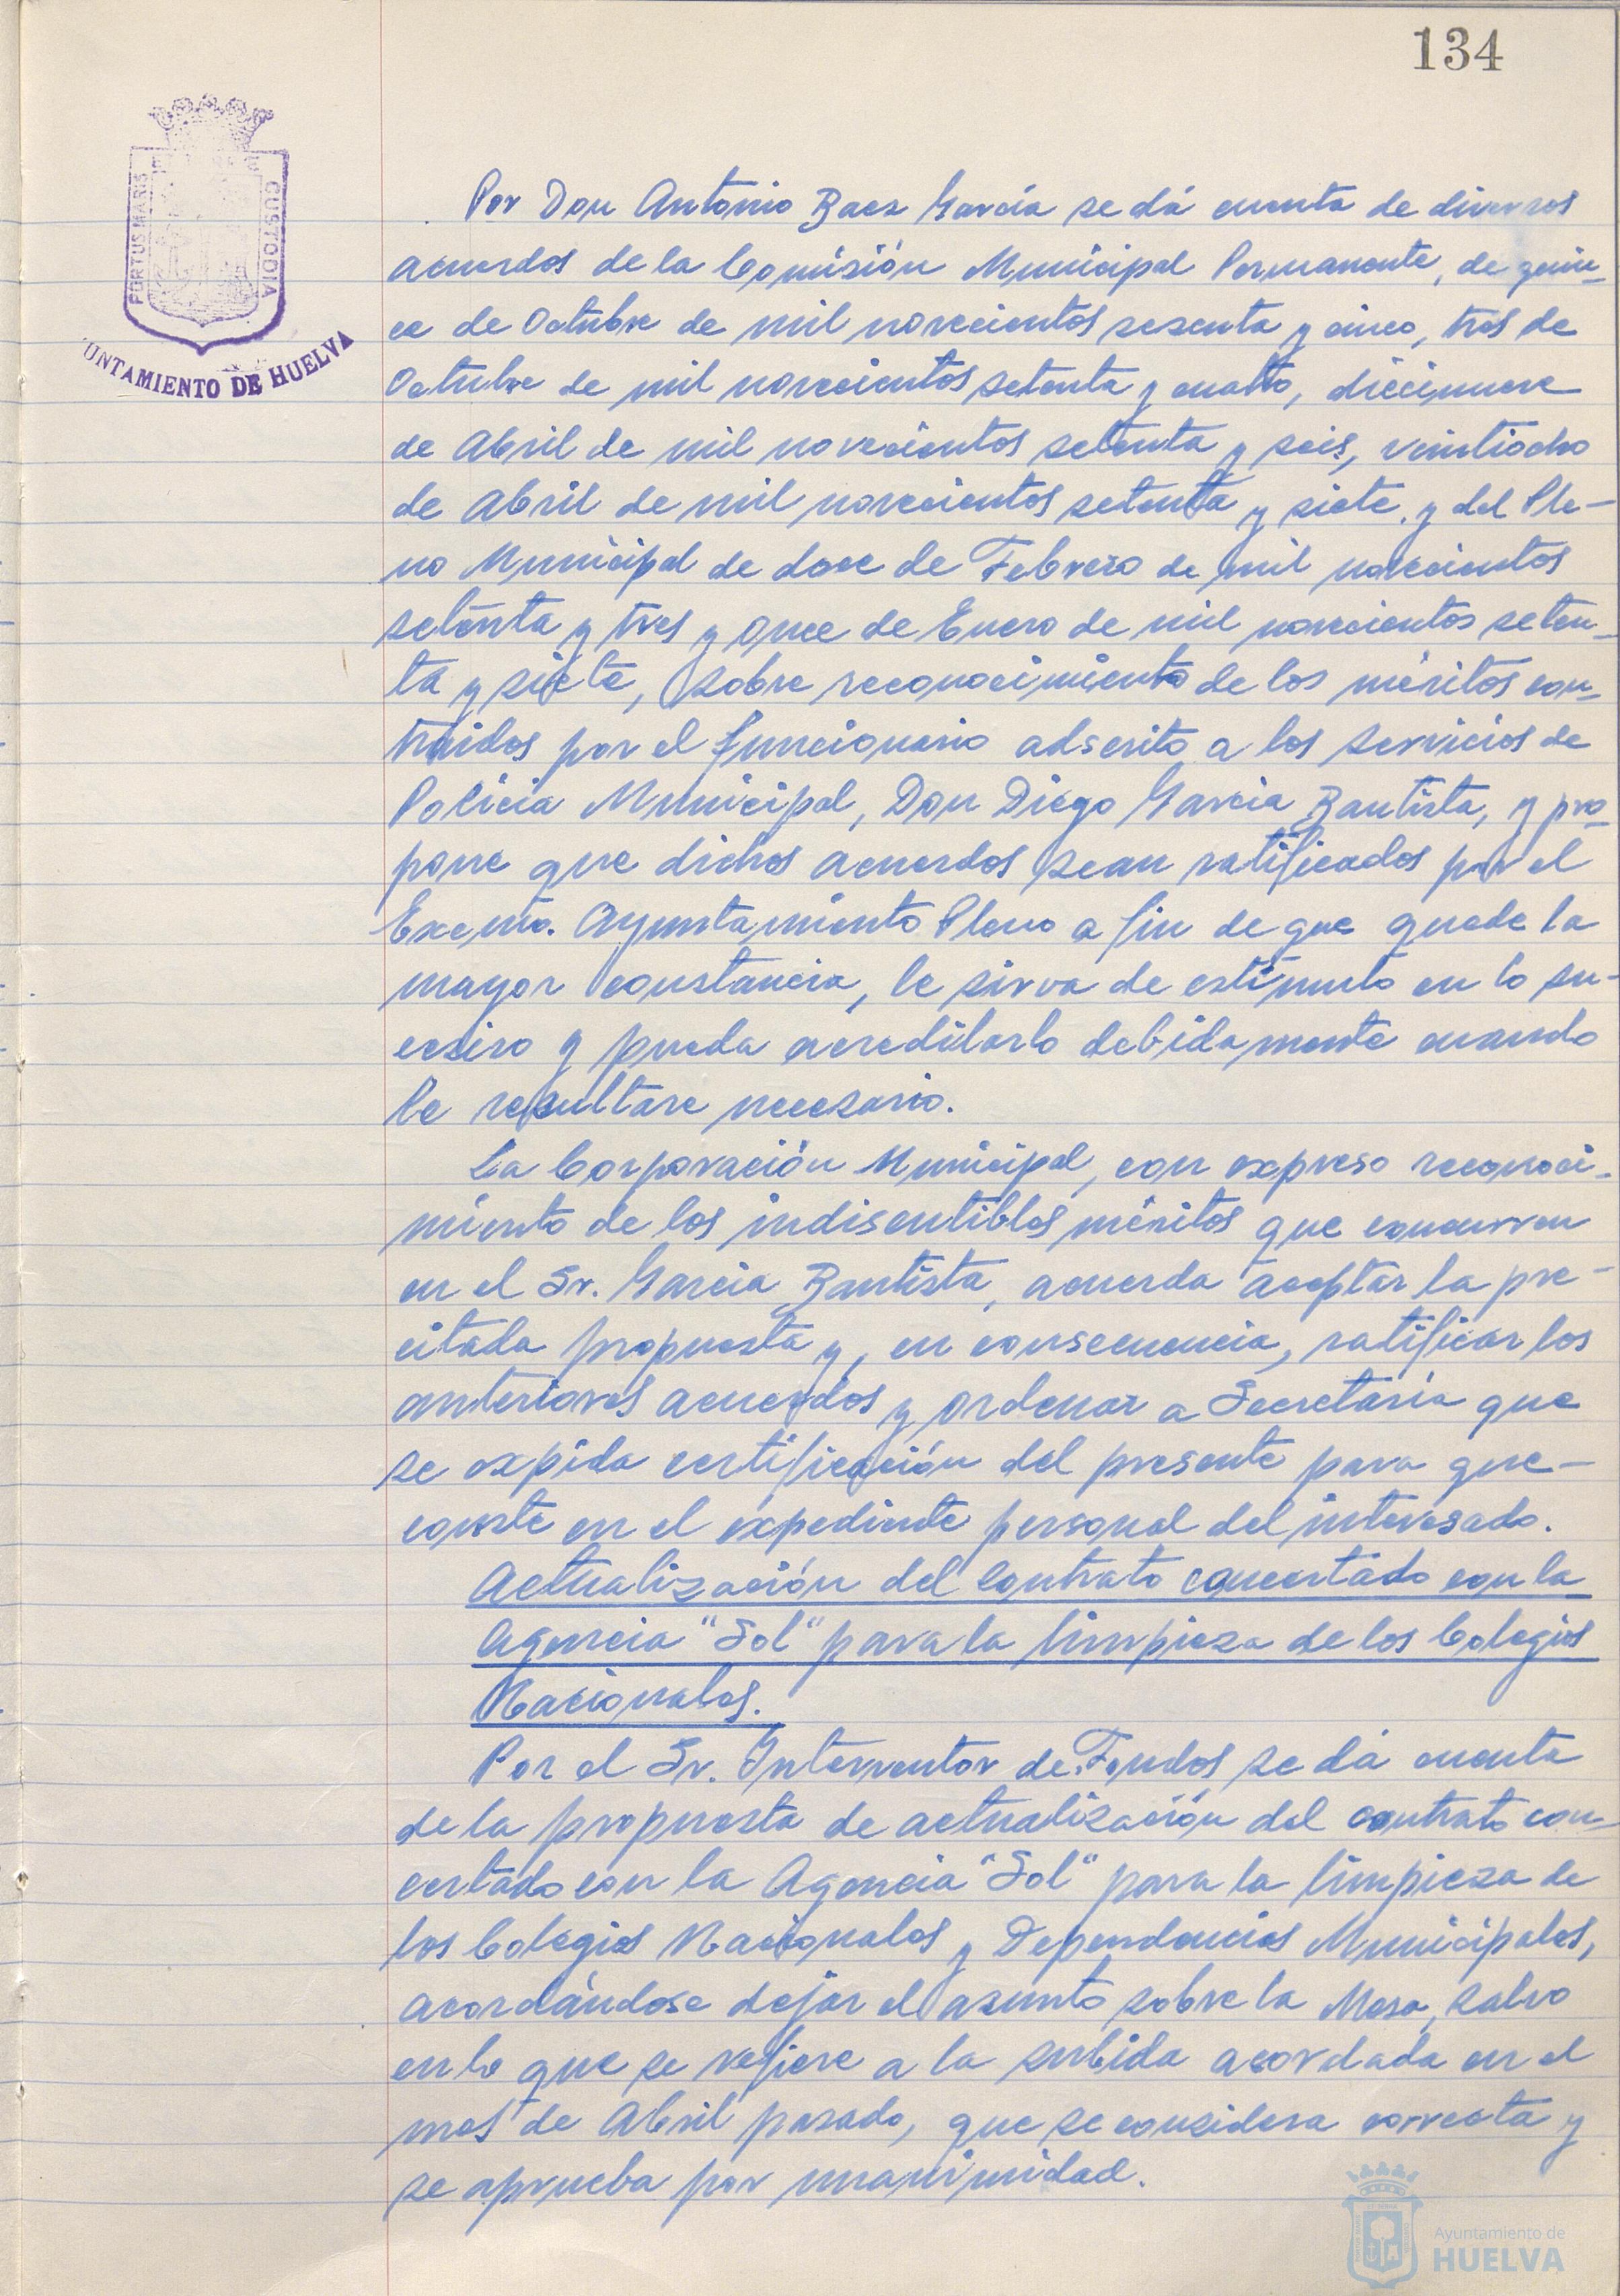 134
PORTUS MARIS
CUSTODIA
UNTAMIENTO DE HUELVA
Por Don Antonio Baez García se dá cuenta de diversos
acuerdos de la Comisión Municipal Permanente, de quin-
ce de Octubre de mil novecientos sesenta y cinco, tres de
Octubre de mil novecientos setenta y cuatro, diecinueve
de Abril de mil novecientos setenta y seis, veintiocho
de Abril de mil novecientos setenta y siete, y del Ple-
no Municipal de doce de Febrero de mil novecientos
setenta y tres y once de Enero de mil novecientos seten-
ta y siete, sobre reconocimiento de los méritos con-
traidos por el funcionario adscrito a los servicios de
Policia Municipal, Don Diego Garcia Bautista, y pro-
pone que dichos acuerdos sean ratificados por el
Excmo. Ayuntamiento Pleno a fin de que quede la
mayor constancia, le sirva de estímulo en lo su-
cesivo y pueda acreditarlo debidamente cuando
le resultare necesario.
La Corporación Municipal, con expreso reconoci-
miento de los indiscutibles méritos que concurren
en el Sr. Garcia Bautista, acuerda aceptar la pre-
citada propuesta y, en consecuencia, ratificar los
anteriores acuerdos y ordenar a Secretaria que
se expida certificación del presente para que-
conste en el expediente personal del interesado.
Actualización del contrato concertado con la
Agencia "Sol" para la limpieza de los Colegios
Nacionales.
Por el Sr. Interventor de Fondos se dá cuenta
de la propuesta de actualización del contrato con-
certado con la Agencia "Sol" para la limpieza de
los Colegios Nacionales y Dependencias Municipales,
acordándose dejar el asunto sobre la Mesa, salvo
en lo que se refiere a la subida acordada en el
mes de Abril pasado, que se considera correcta y
se aprueba por unanimidad.
Ayuntamiento de
HUELVA